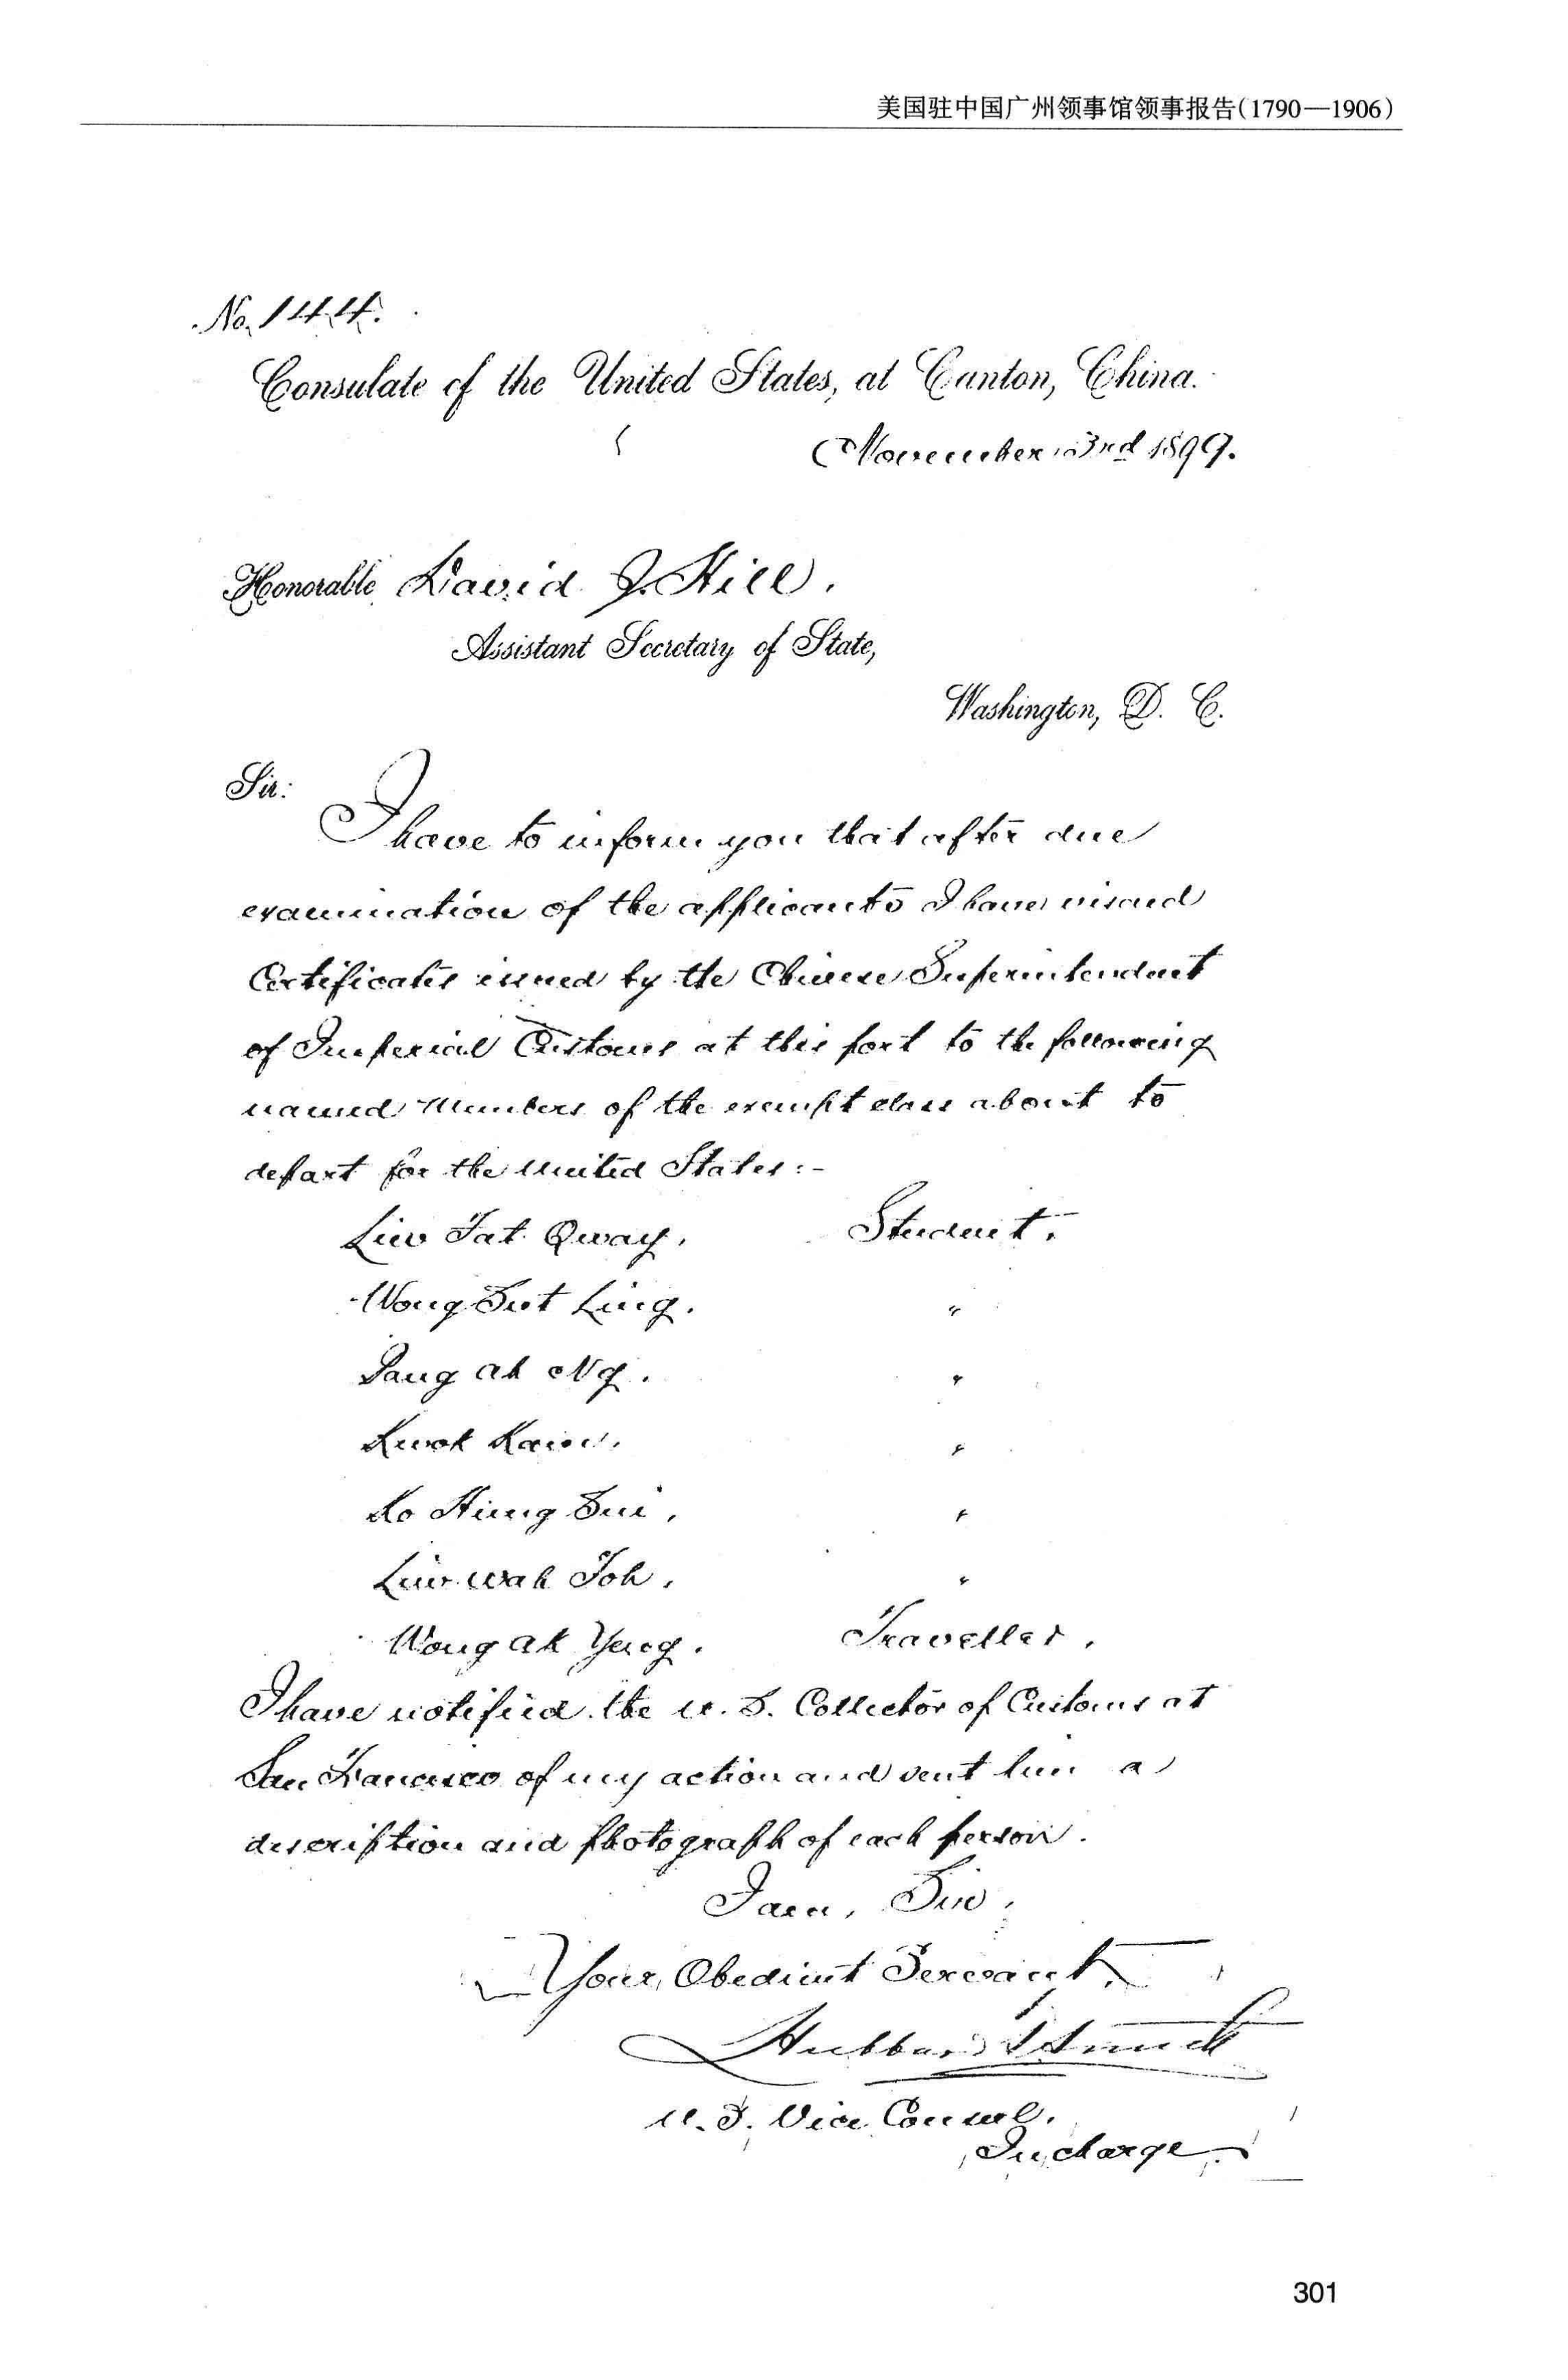 美国驻中国广州领事馆领事报告(1790—1906)
No. 144.
Consulate of the United States, at Canton, China.
November 3rd 1899.
Honorable David J. Hill,
Assistant Secretary of State,
Washington, D. C.
Sir:
I have to inform you that after due
examination of the applicants I have visaed
Certificates issued by the Chinese Superintendent
of Imperial Customs at this port to the following
named Members of the exempt class about to
depart for the United States:-
Liu Fat Qway, Student.
Wong Sut Ling. "
Pang Ah Ng. "
Kwok "
Ko Hing Sui, "
Wah Toh, "
Wong Ah Yung. Traveller.
I have notified the U. S. Collector of Customs at
San Francisco of my action and sent him a
description and photograph of each person.
I am, Sir,
Your Obedient Servant,
Hubbard T. Smith
U. S. Vice Consul,
In charge.
301